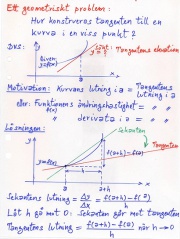 Ett geometriskt problem:
Hur konstrueras tangenten till en
kurva i en viss punkt?
DVS:
y sånt: Tangentens ekvation
y=?
Given:
y=f(x)
a
x
Motivation: Kurvans lutning i a = Tangentens lutning i a
eller: Funktionens ändringshastighet = " "
derivata i a = " "
Lösningen:
Sekanten
Tangenten
f(a+h)-f(a)
y=f(x)
h
a
a+h
x
Sekantens lutning = Δy/Δx = f(a+h)-f(a)/h
Låt h gå mot 0: Sekanten går mot tangenten
Tangentens lutning = f(a+h)-f(a)/h när h→0